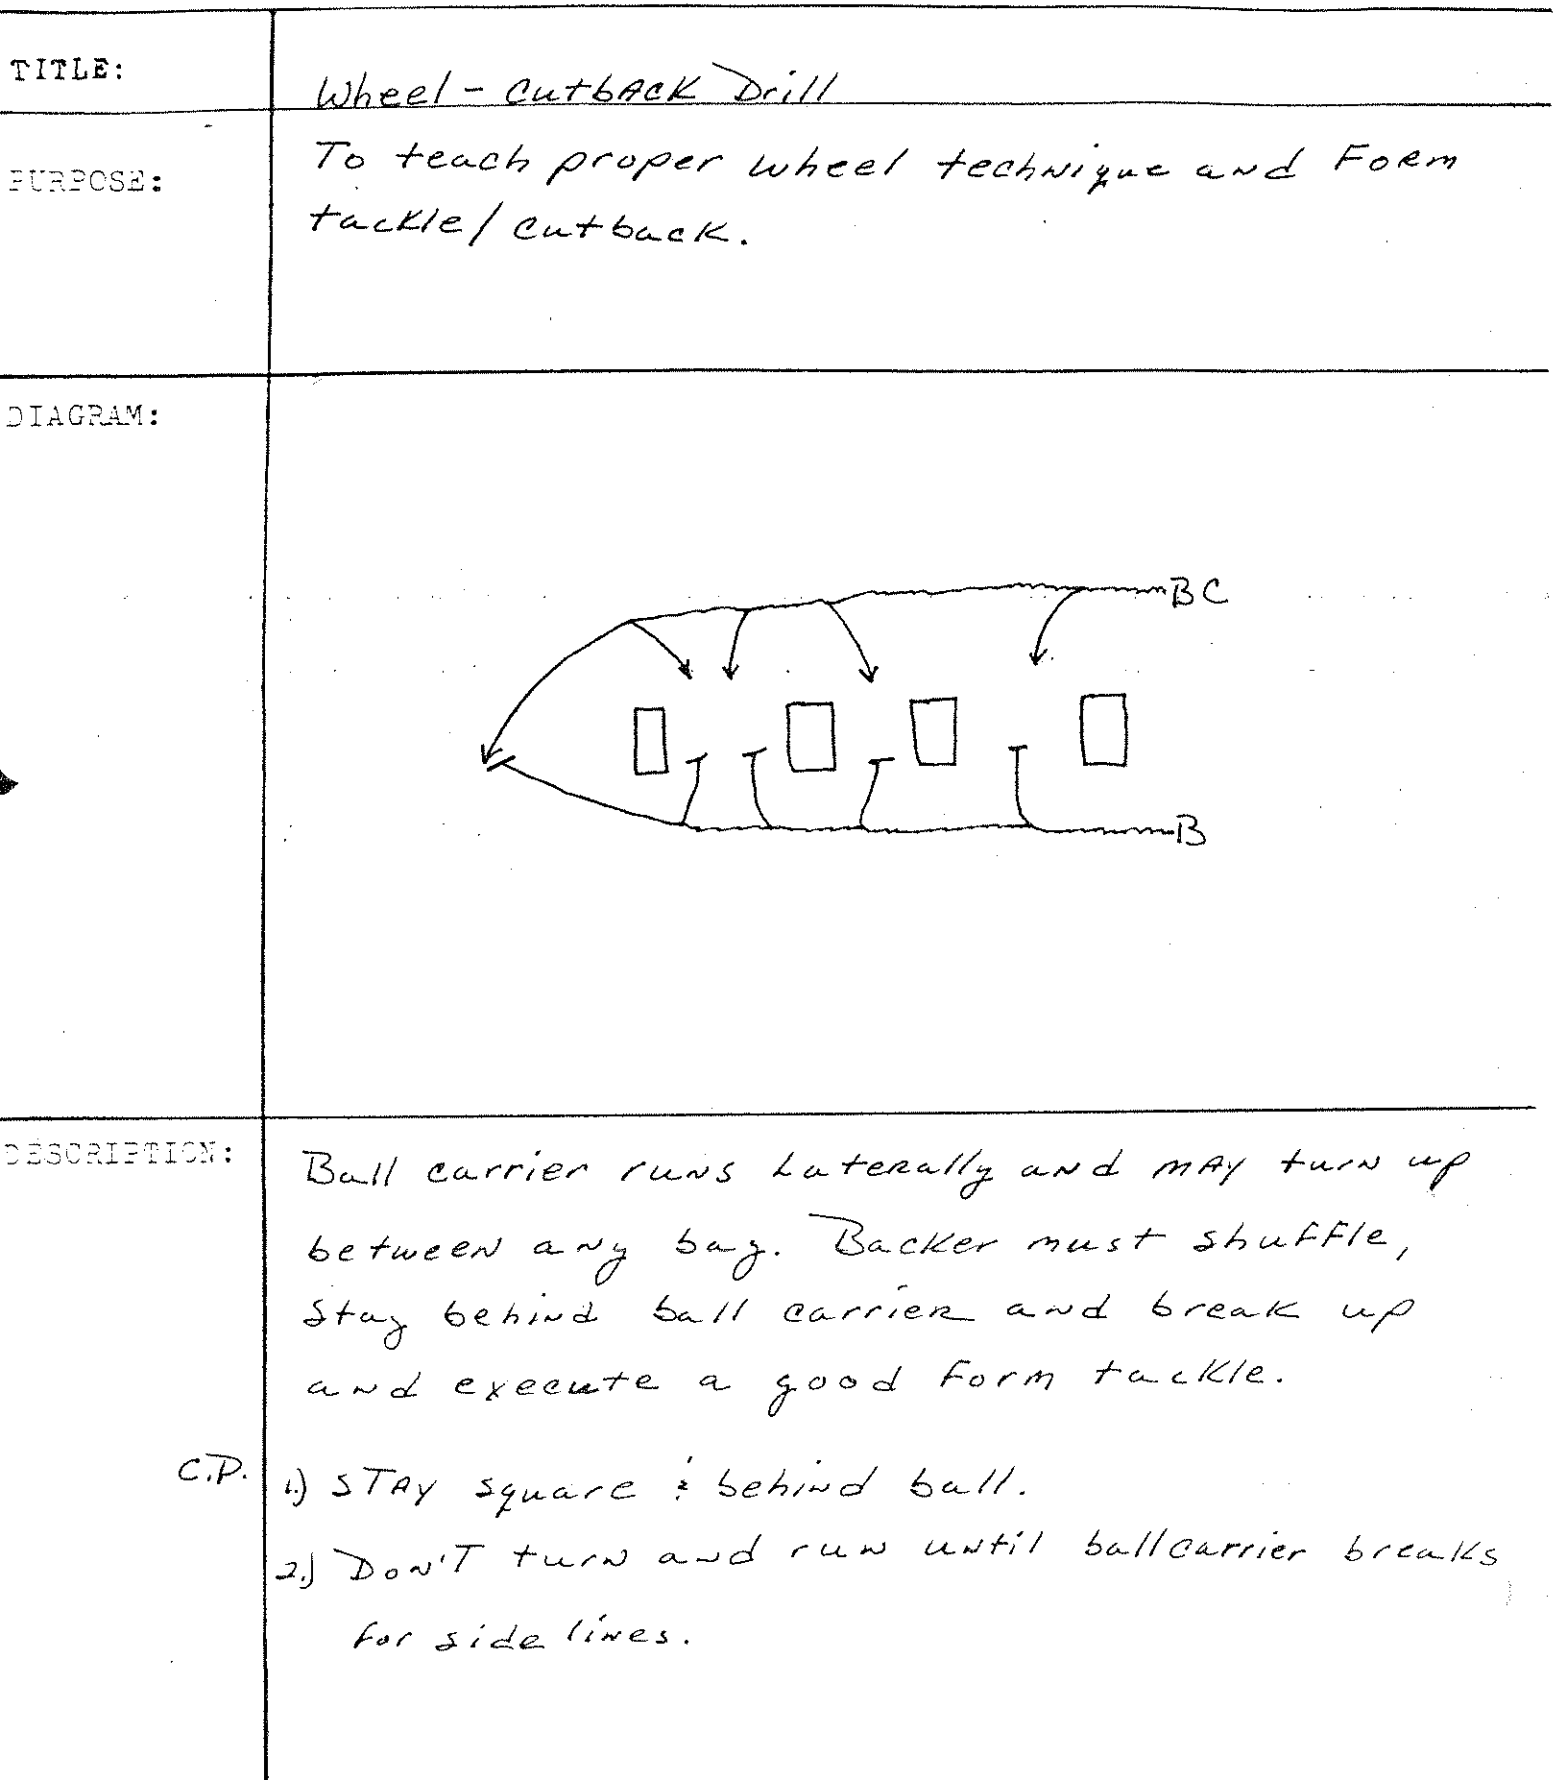 TITLE:
Wheel - Cutback Drill
PURPOSE:
To teach proper wheel technique and Form
tackle/cutback.
DIAGRAM:
BC
B
DESCRIPTION:
Ball carrier runs Laterally and may turn up
between any bag. Backer must shuffle,
Stay behind ball carrier and break up
and execute a good form tackle.
C.P. 1.) STAY square & behind ball.
2.) DON'T turn and run until ballcarrier breaks
for side lines.